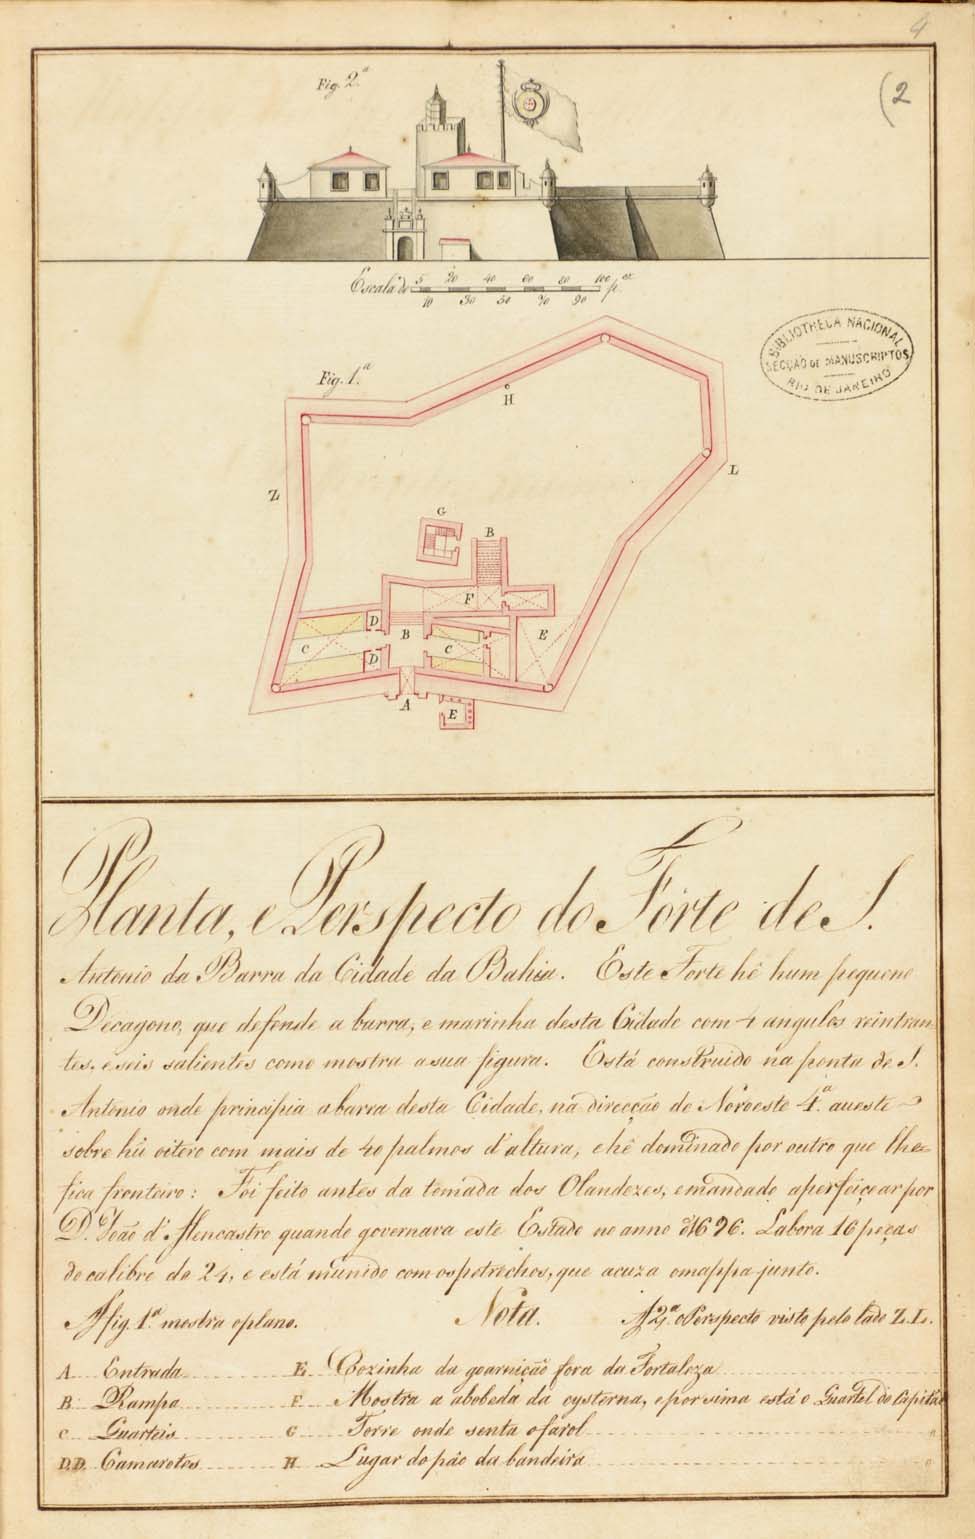 4
(2
Fig. 2.ª
Escala de 5 20 40 60 80 100 p.es
10 30 50 70 90
BIBLIOTHECA NACIONAL
SECÇÃO DE MANUSCRIPTOS
RIO DE JANEIRO
Fig. 1.ª
H
Z
L
G
B
F
D
B
E
C
C
D
A
E
Planta, e Perspecto do Forte de S.
Antonio da Barra da Cidade da Bahia. Este Forte hê hum pequeno
Decagono, que defende a barra, e marinha desta Cidade com 4 angulos reintran-
tes, e seis salientes como mostra a sua figura. Está construido na ponta de S.
Antonio onde principia a barra desta Cidade, na direcção de Noroeste 4.ª aueste
sobre hũ oitero com mais de 40 palmos d'altura, e hê dominado por outro que lhe
fica fronteiro: Foi feito antes da tomada dos Olandezes, e mandado aperfeiçoar por
D. João d'Alencastro quando governava este Estado no anno d 1696. Labora 16 peças
de calibre de 24, e está munido com os petrechos, que acuza o mappa junto.
Nota.
A fig. 1.ª mostra o plano. A 2.ª o Perspecto visto pelo lado Z. L.
A Entrada E Cozinha da goarnição fora da Fortaleza
B Rampa F Mostra a abobeda da cysterna, e por sima está o Quartel do Capitão
C Quarteis G Torre onde senta o farol
D.D. Camarotes H Lugar do páo da bandeira